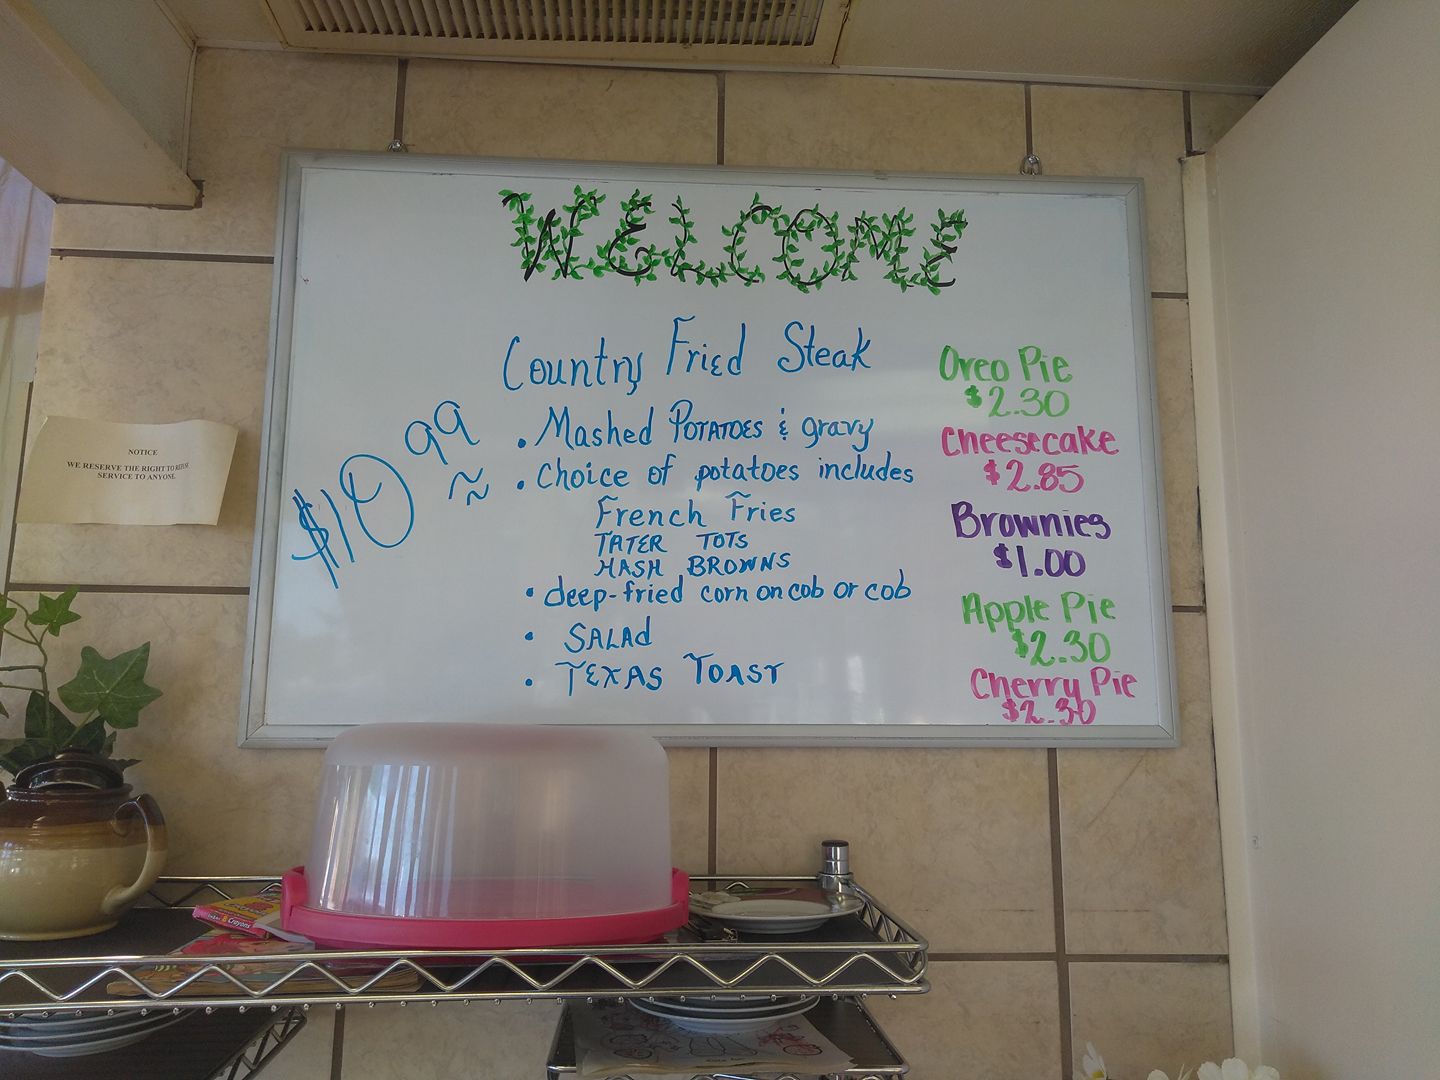 WELCOME
Country Fried Steak
$10 99
. Mashed POTATOES & gravy
. Choice of potatoes includes
French Fries
TATER TOTS
HASH BROWNS
• deep-fried corn on cob or cob
• SALAd
• TEXAS TOAST
Oreo Pie
$2.30
Cheesecake
$2.85
Brownies
$1.00
Apple Pie
$2.30
Cherry Pie
$2.30
NOTICE
WE RESERVE THE RIGHT TO REFUSE
SERVICE TO ANYONE
Crayons